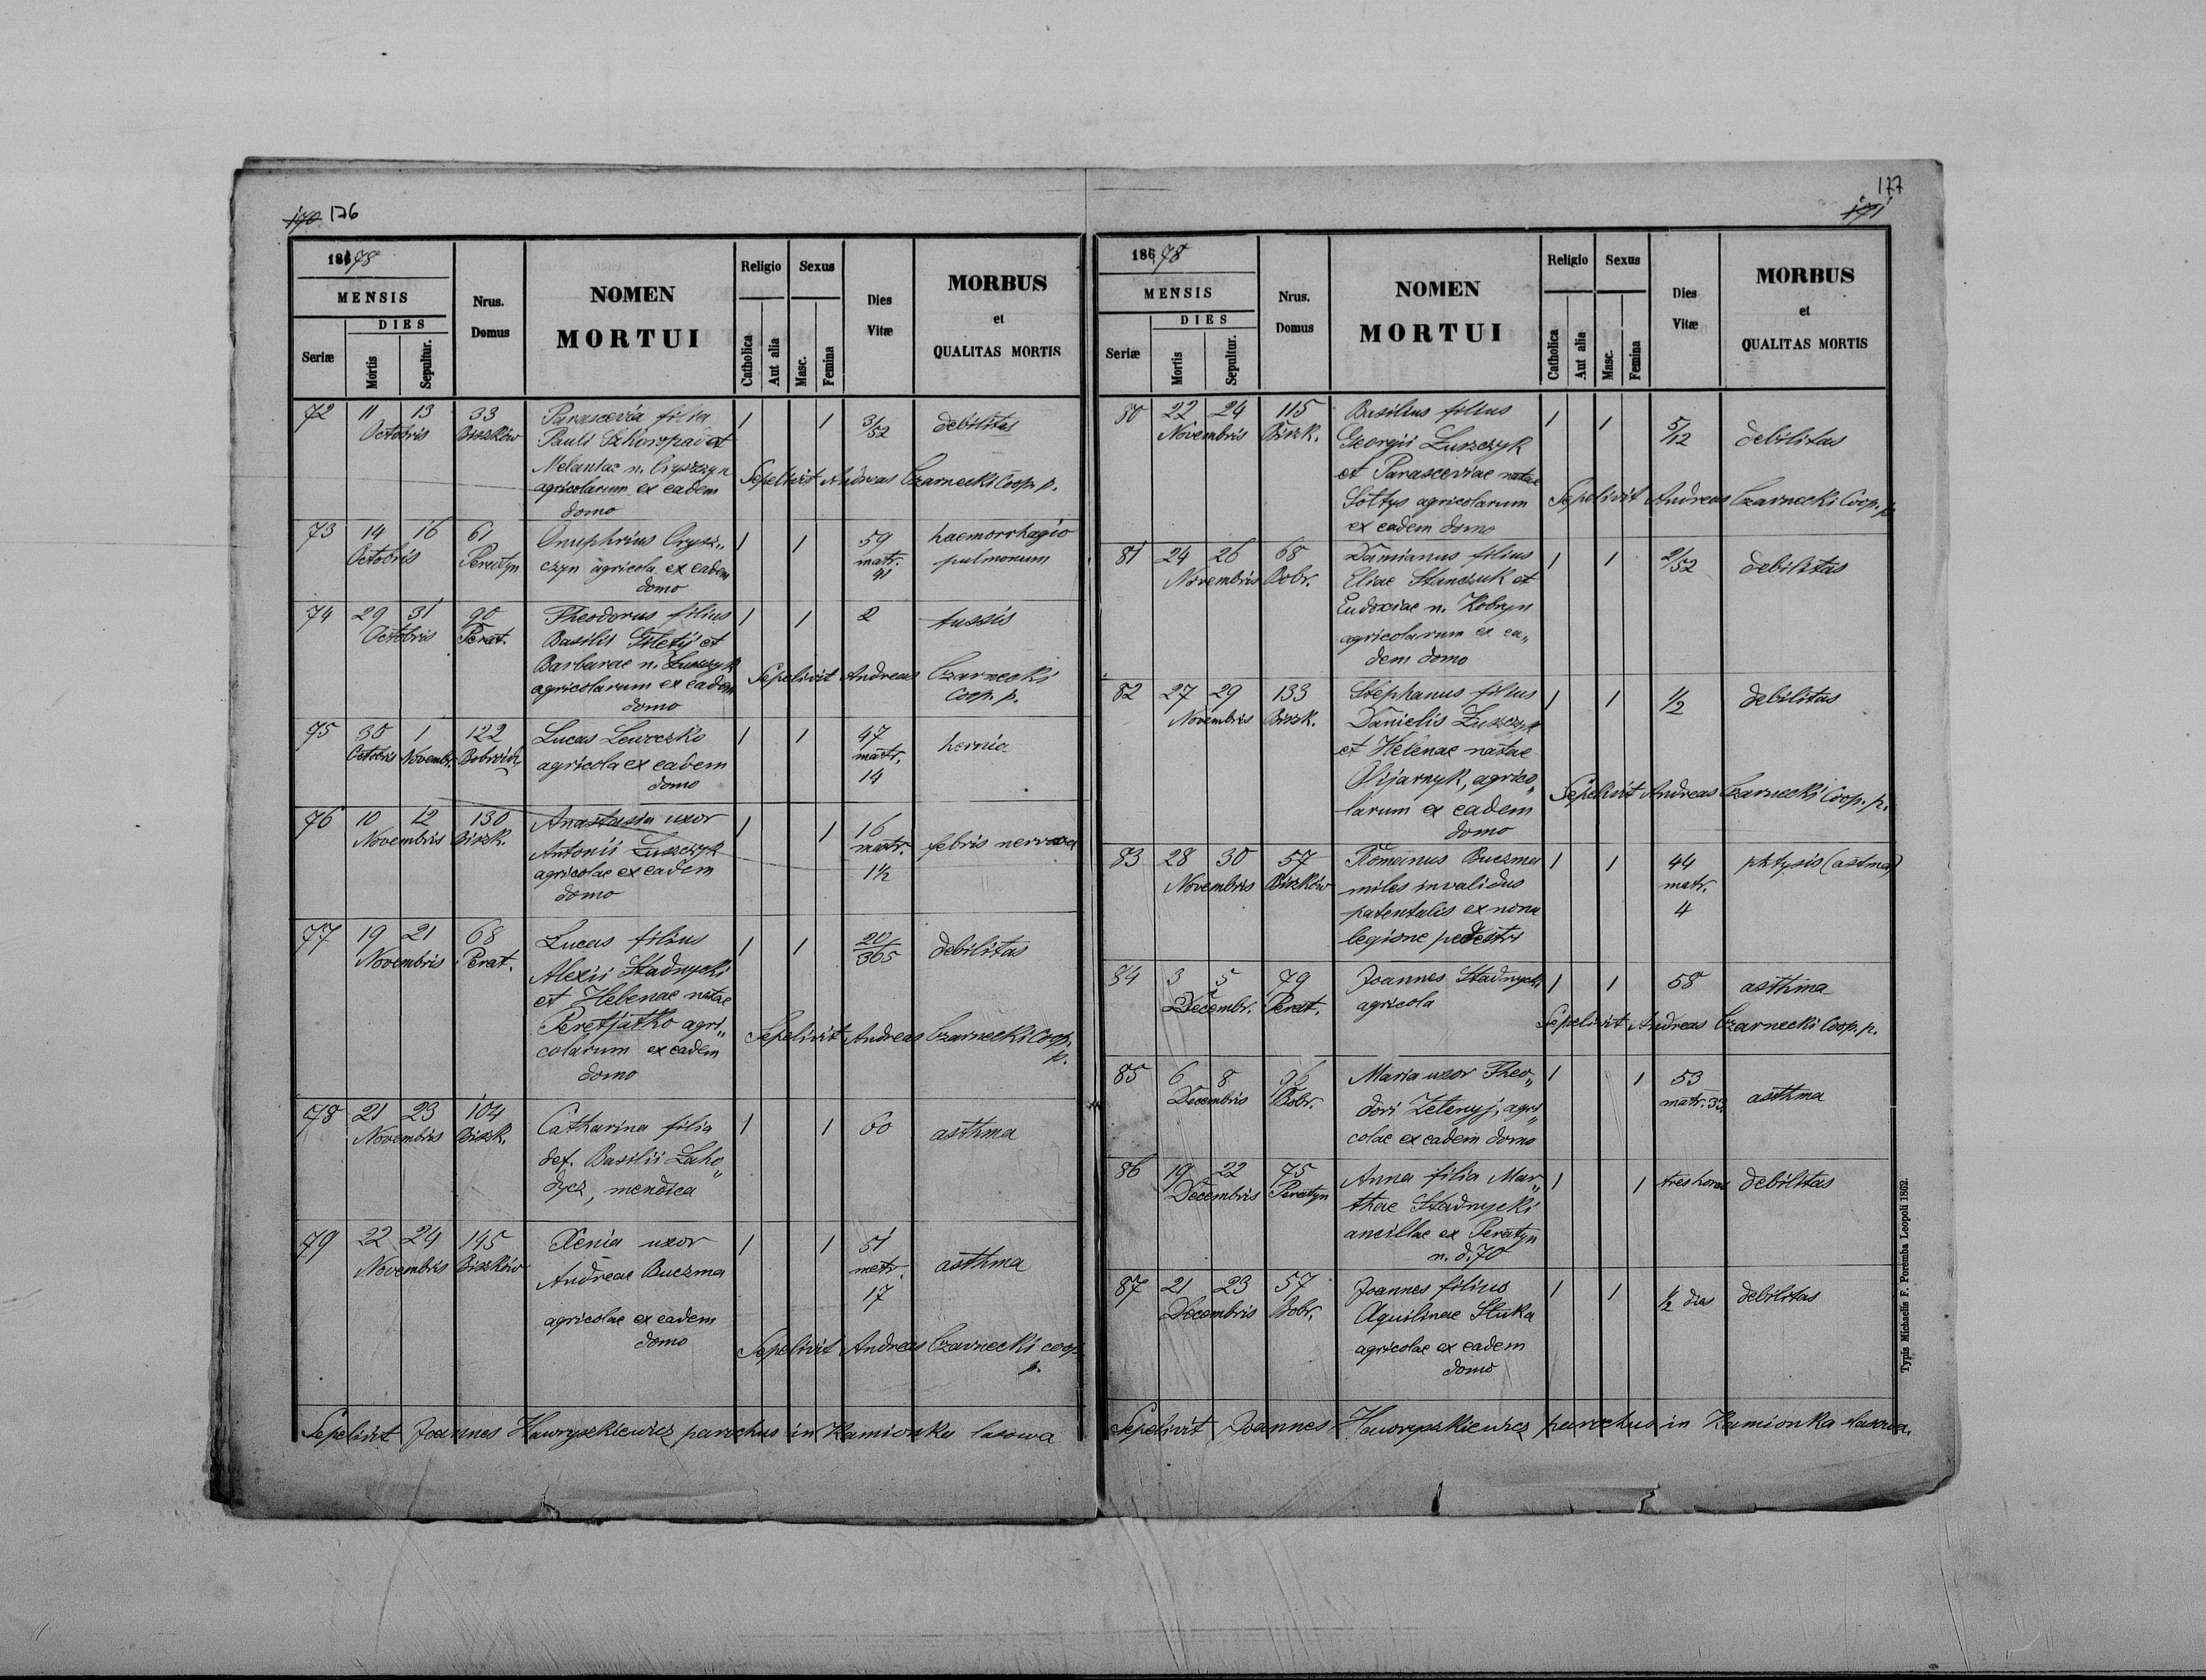 170 176
1878
MENSIS
DIES
Seriæ
Mortis
Sepultur.
Nrus.
Domus
NOMEN
MORTUI
Religio
Catholica
Aut alia
Sexus
Masc.
Femina
Dies
Vitæ
MORBUS
et
QUALITAS MORTIS
72 11 13 33 Parascevia filia 1 1 3/52 debilitas
Octobris Biszków Pauli et
Melaniae n. Oryszczyn
agricolarum ex eadem
domo
Sepelivit Andreas Czarnecki Coop. p.
73 14 16 61 Onuphrius Orysz„ 1 1 59 haemorrhagio
Octobris Peratyn czyn agricola ex eadem matr. pulmonum
domo 41
74 29 31 90 Theodorus filius 1 1 2 tussis
Octobris Perat. Basilii et
Barbarae n. Łuszczyk
agricolarum ex eadem
domo
Sepelivit Andreas Czarnecki
Coop. p.
75 30 1 122 Lucas Lewoczko 1 1 47 hernia
Octobris Novembr. agricola ex eadem matr.
domo 14
76 10 12 130 Anastasia uxor 1 1 16 febris nervosa
Novembris Biszk. Antonii Łuszczyk matr.
agricolae ex eadem 1½
domo
77 19 21 68 Lucas filius 1 1 20/365 debilitas
Novembris Perat. Alexii Stadnycki
et Helenae natae
Peretjatko agri„
colarum ex eadem
domo
Sepelivit Andreas Czarnecki Coop.
p.
78 21 23 104 Catharina filia 1 1 60 asthma
Novembris Biszk. def. Basilii Laho„
dycz, mendica
79 22 24 145 Xenia uxor 1 1 51 asthma
Novembris Biszków Andreae Buczma matr.
17
agricolae ex eadem
domo
Sepelivit Andreas Czarnecki coop.
p.
Sepelivit Joannes Hawryszkiewicz parochus in Kamionka lasowa
177
171
1878
MENSIS
DIES
Seriæ
Mortis
Sepultur.
Nrus.
Domus
NOMEN
MORTUI
Religio
Catholica
Aut alia
Sexus
Masc.
Femina
Dies
Vitæ
MORBUS
et
QUALITAS MORTIS
80 22 24 115 Basilius filius 1 1 5/12 debilitas
Novembris Biszk. Georgii Łuszczyk
et Parasceviae natae
Sołtys agricolarum
ex eadem domo
Sepelivit Andreas Czarnecki Coop. p.
81 24 26 68 Damianus filius 1 1 2/52 debilitas
Novembris Bobr. Eliae Stanczuk et
Eudoxiae n. Kobryn
agricolarum ex ea„
dem domo
82 27 29 133 Stephanus filius 1 1 1/2 debilitas
Novembris Biszk. Danielis Łuszczyk
et Helenae natae
Olijarnyk, agrico„
larum ex eadem
domo
Sepelivit Andreas Czarnecki Coop. p.
83 28 30 57 Romanus Buczma 1 1 44 phtysis (astma)
Novembris Biszków miles invalidus matr.
patentalis ex nona 4
legione pedestri
84 3 5 79 Joannes Stadnycki 1 1 58 asthma
Decembr. Perat. agricola
Sepelivit Andreas Czarnecki Coop. p.
85 6 8 96 Maria uxor Theo„ 1 1 53 asthma
Decembris Bobr. dori Zelenyj, agri„ matr. 33.
colae ex eadem domo
86 19 22 75 Anna filia Mar„ 1 1 tres horas debilitas
Decembris Peratyn thae Stadnycki
ancillae ex Peratyn
n. d. 70
87 21 23 57 Joannes filius 1 1 1/2 dias debilitas
Decembris Bobr. Aquilinae Stuka
agricolae ex eadem
domo
Sepelivit Joannes Hawryszkiewicz parochus in Kamionka lasowa.
Typis Michaelis F. Poremba Leopoli 1862.